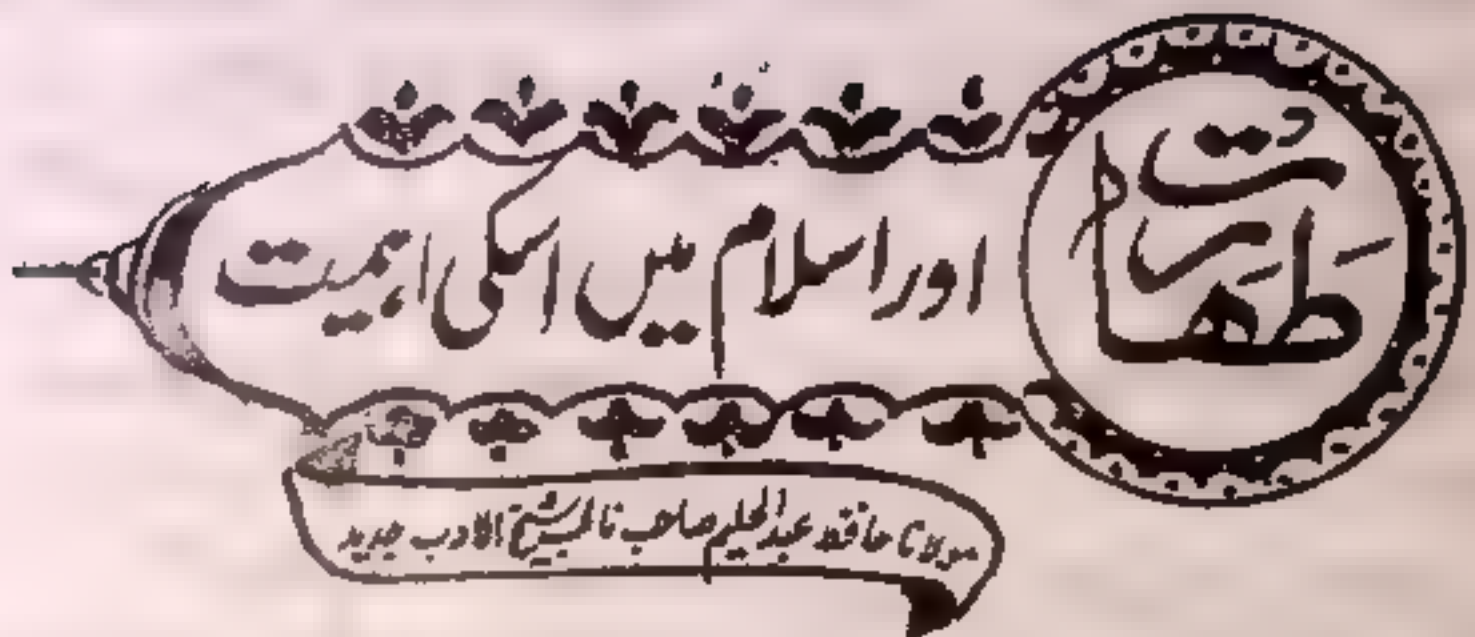 طَهَارت
اور اسلام میں اسکی اہمیت
مولانا حافظ عبدالحلیم صاحب نائب شیخ الادب جدید